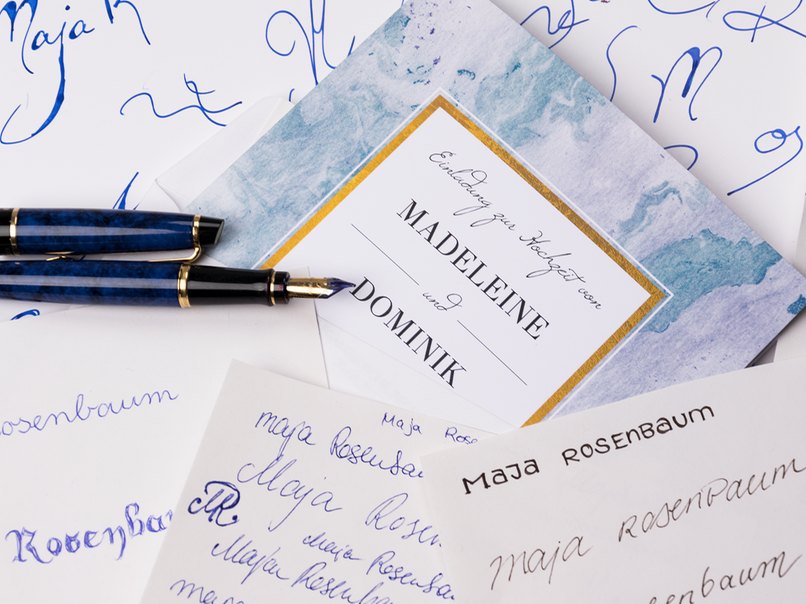 Maja R
M
M
Einladung zur Hochzeit von
MADELEINE
und
DOMINIK
osenbaum
Rosenba
Maja Rose
maja Rosenba
Maja Rosen
MR
Maja Rosenba
Maja Rosenba
maja
Maja Rosenbaum
maja Rosenbaum
senbaum